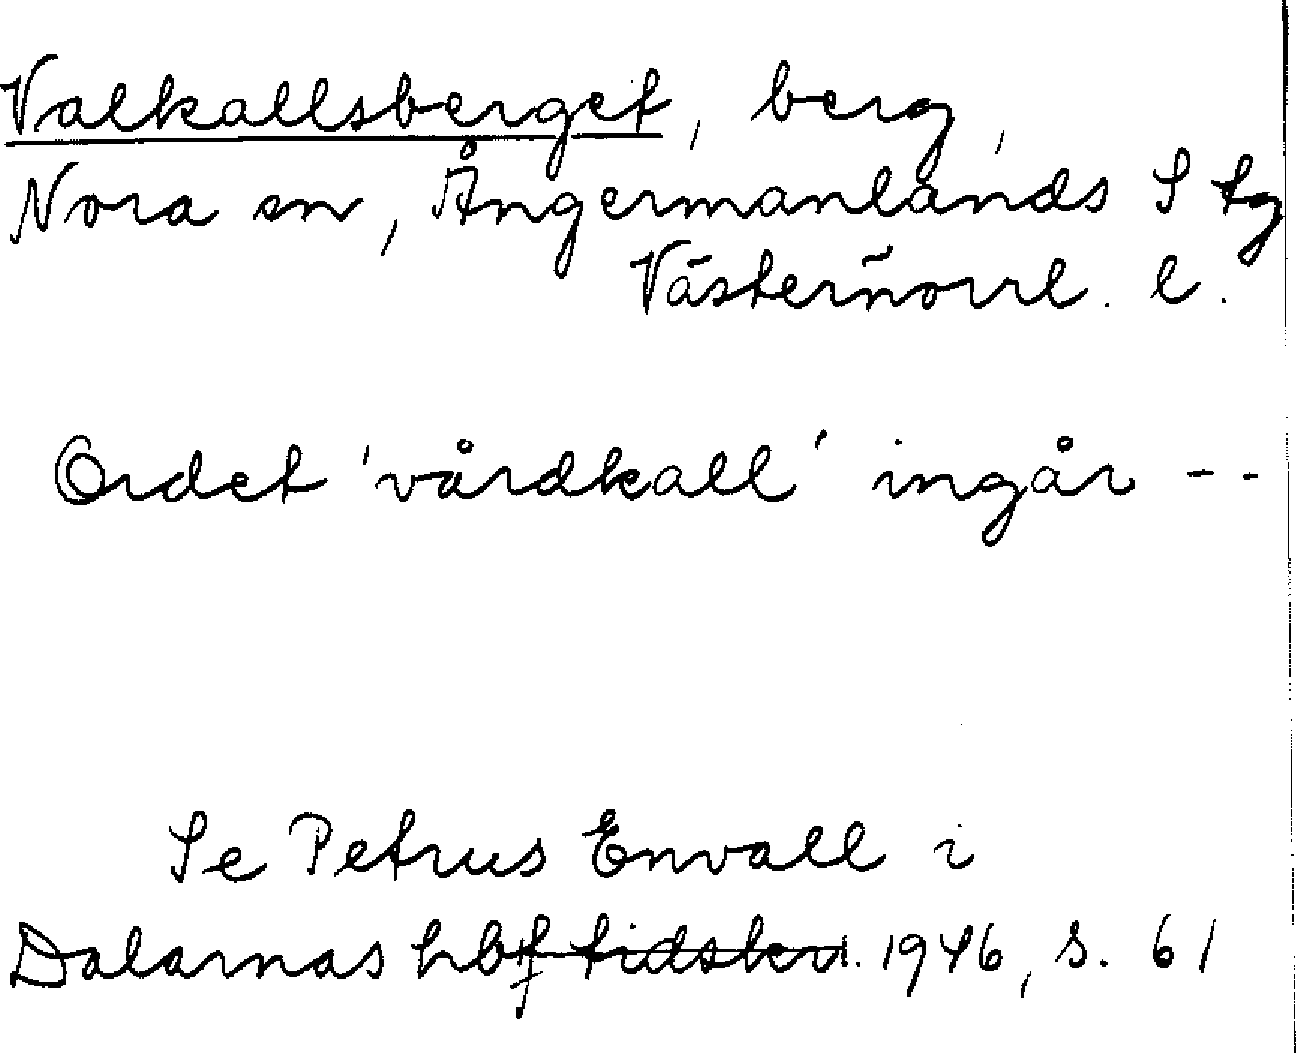 Valkallsberget, berg,
Nora sn, Ångermanlands S tg
Västernorrl. l.
Ordet 'vårdkall' ingår - -
Se Petrus Envall i
Dalarnas hbf tidskr. 1946, s. 61